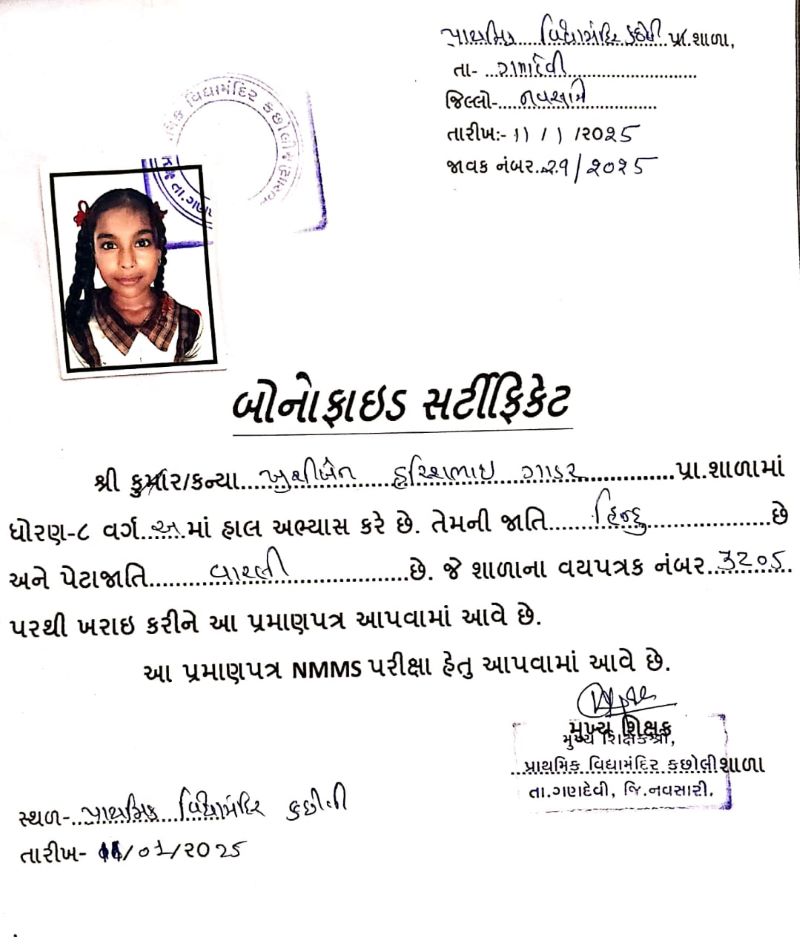 પ્રાથમિક વિદ્યામંદિર કછોલી પ્રા.શાળા,
તા- ગણદેવી
જિલ્લો- નવસારી
તારીખ:- 11/1/2025
જાવક નંબર. 29/2025
વિદ્યામંદિર કછોલી
બોનોફાઇડ સર્ટીફિકેટ
શ્રી કુમાર/કન્યા ખુશીબેન હરિશભાઇ ગાડર પ્રા.શાળામાં
ધોરણ-૮ વર્ગ અ માં હાલ અભ્યાસ કરે છે. તેમની જાતિ હિન્દુ છે
અને પેટાજાતિ વારલી છે. જે શાળાના વયપત્રક નંબર 3205
પરથી ખરાઇ કરીને આ પ્રમાણપત્ર આપવામાં આવે છે.
આ પ્રમાણપત્ર NMMS પરીક્ષા હેતુ આપવામાં આવે છે.
મુખ્ય શિક્ષક
મુખ્ય શિક્ષકશ્રી,
પ્રાથમિક વિદ્યામંદિર કછોલી શાળા
તા.ગણદેવી, જિ.નવસારી.
સ્થળ- પ્રાથમિક વિદ્યામંદિર કછોલી
તારીખ- 11/01/2025